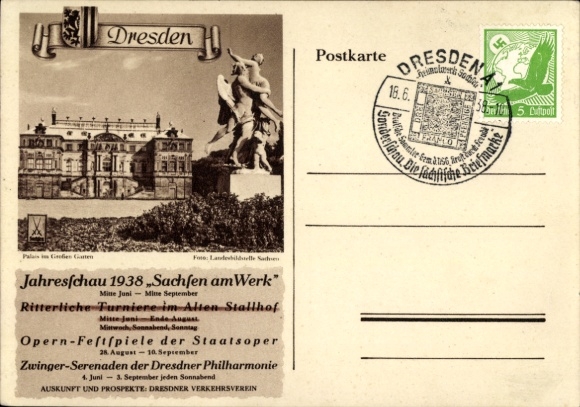 Dresden
Palais im Großen Garten
Foto: Landesbildstelle Sachsen
Jahresschau 1938 „Sachsen am Werk”
Mitte Juni — Mitte September
Ritterliche Turniere im Alten Stallhof
Mitte Juni — Ende August
Mittwoch, Sonnabend, Sonntag
Opern-Festspiele der Staatsoper
28. August — 10. September
Zwinger-Serenaden der Dresdner Philharmonie
4. Juni — 3. September jeden Sonnabend
AUSKUNFT UND PROSPEKTE: DRESDNER VERKEHRSVEREIN
Postkarte
DRESDEN A
18.6.
Sonderschau „Die sächsische Briefmarke
5 Luftpost